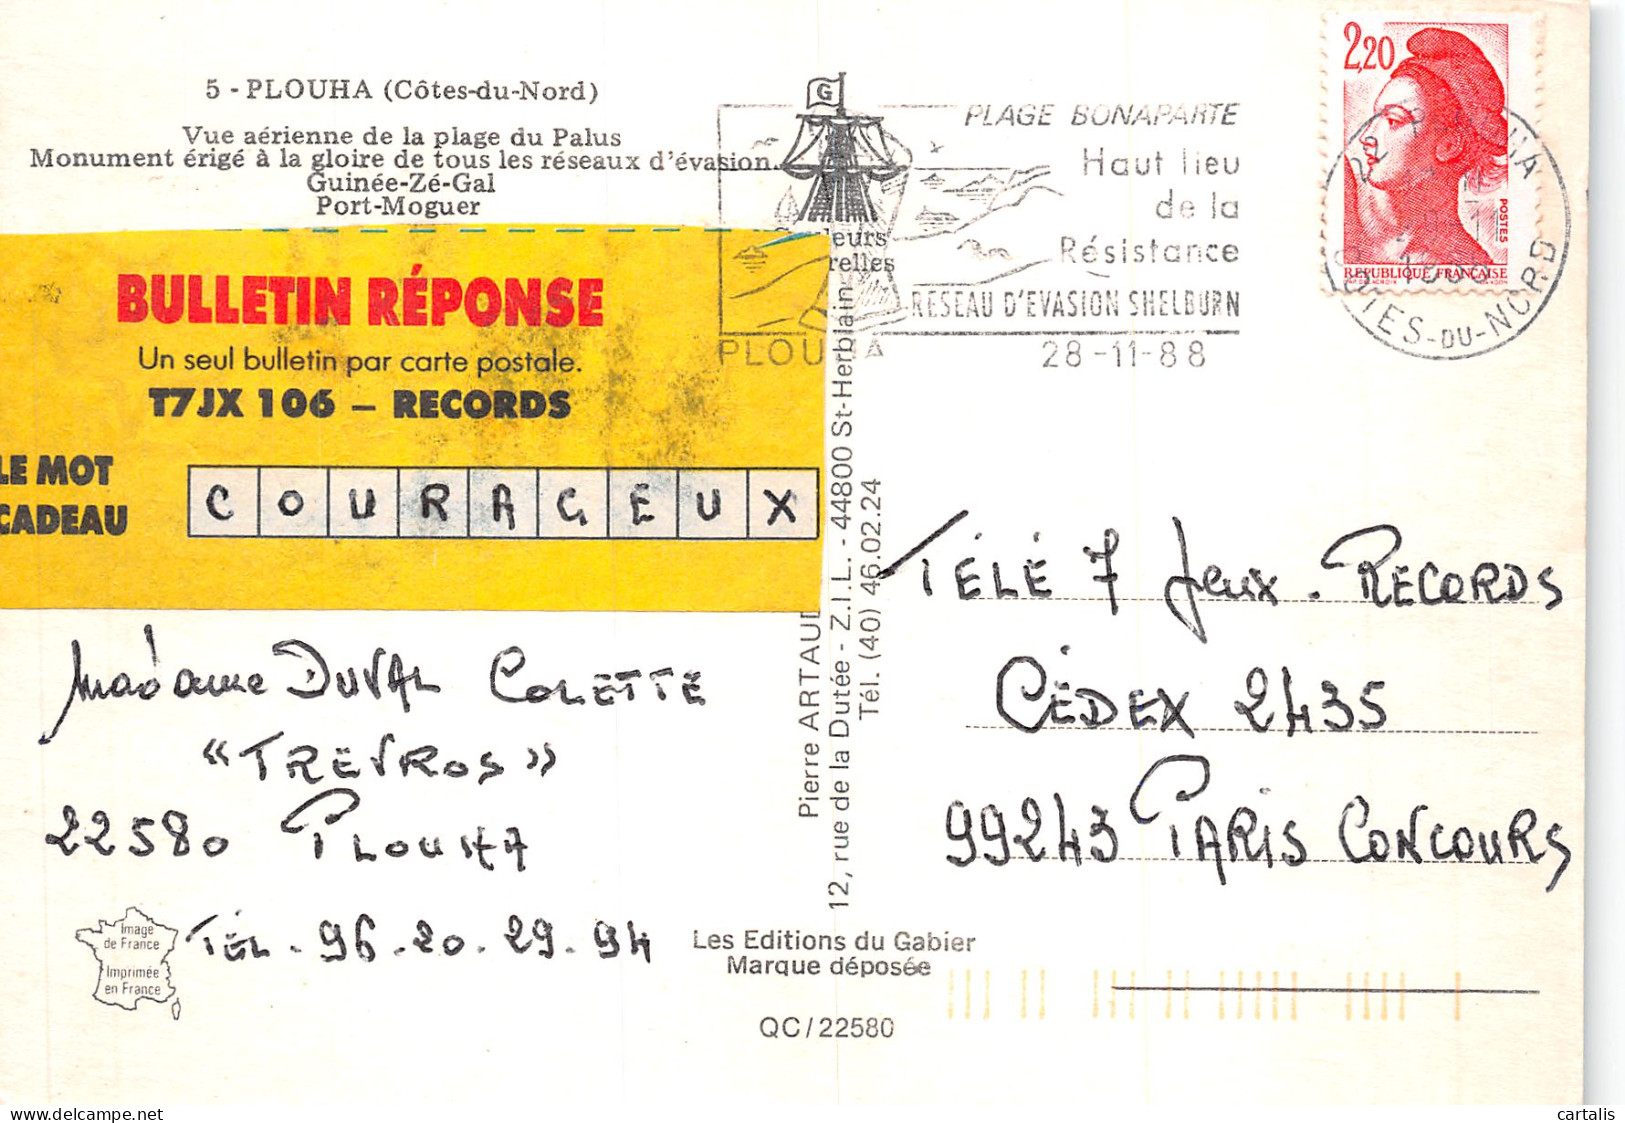 5 - PLOUHA (Côtes-du-Nord)
Vue aérienne de la plage du Palus
Monument érigé à la gloire de tous les réseaux d'évasion.
Guinée-Zé-Gal
Port-Moguer
BULLETIN RÉPONSE
Un seul bulletin par carte postale.
T7JX 106 – RECORDS
LE MOT
CADEAU
COURAGEUX
Madame DUVAL COLETTE
"TREVROS"
22580 PLOUHA
TÉL. 96.20.29.94
Image
de France
Imprimée
en France
G
PLAGE BONAPARTE
Haut lieu
de la
Résistance
RESEAU D'EVASION SHELBURN
PLOUHA 28-11-88
Pierre ARTAUD
12, rue de la Dutée - Z.I.L. - 44800 St-Herblain
Tél. (40) 46.02.24
Les Editions du Gabier
Marque déposée
QC/22580
2,20
POSTES
REPUBLIQUE FRANÇAISE
22 PLOUHA
COTES-DU-NORD
TÉLÉ 7 Jeux. RECORDS
CÉDEX 2435
99243 PARIS CONCOURS
cartalis